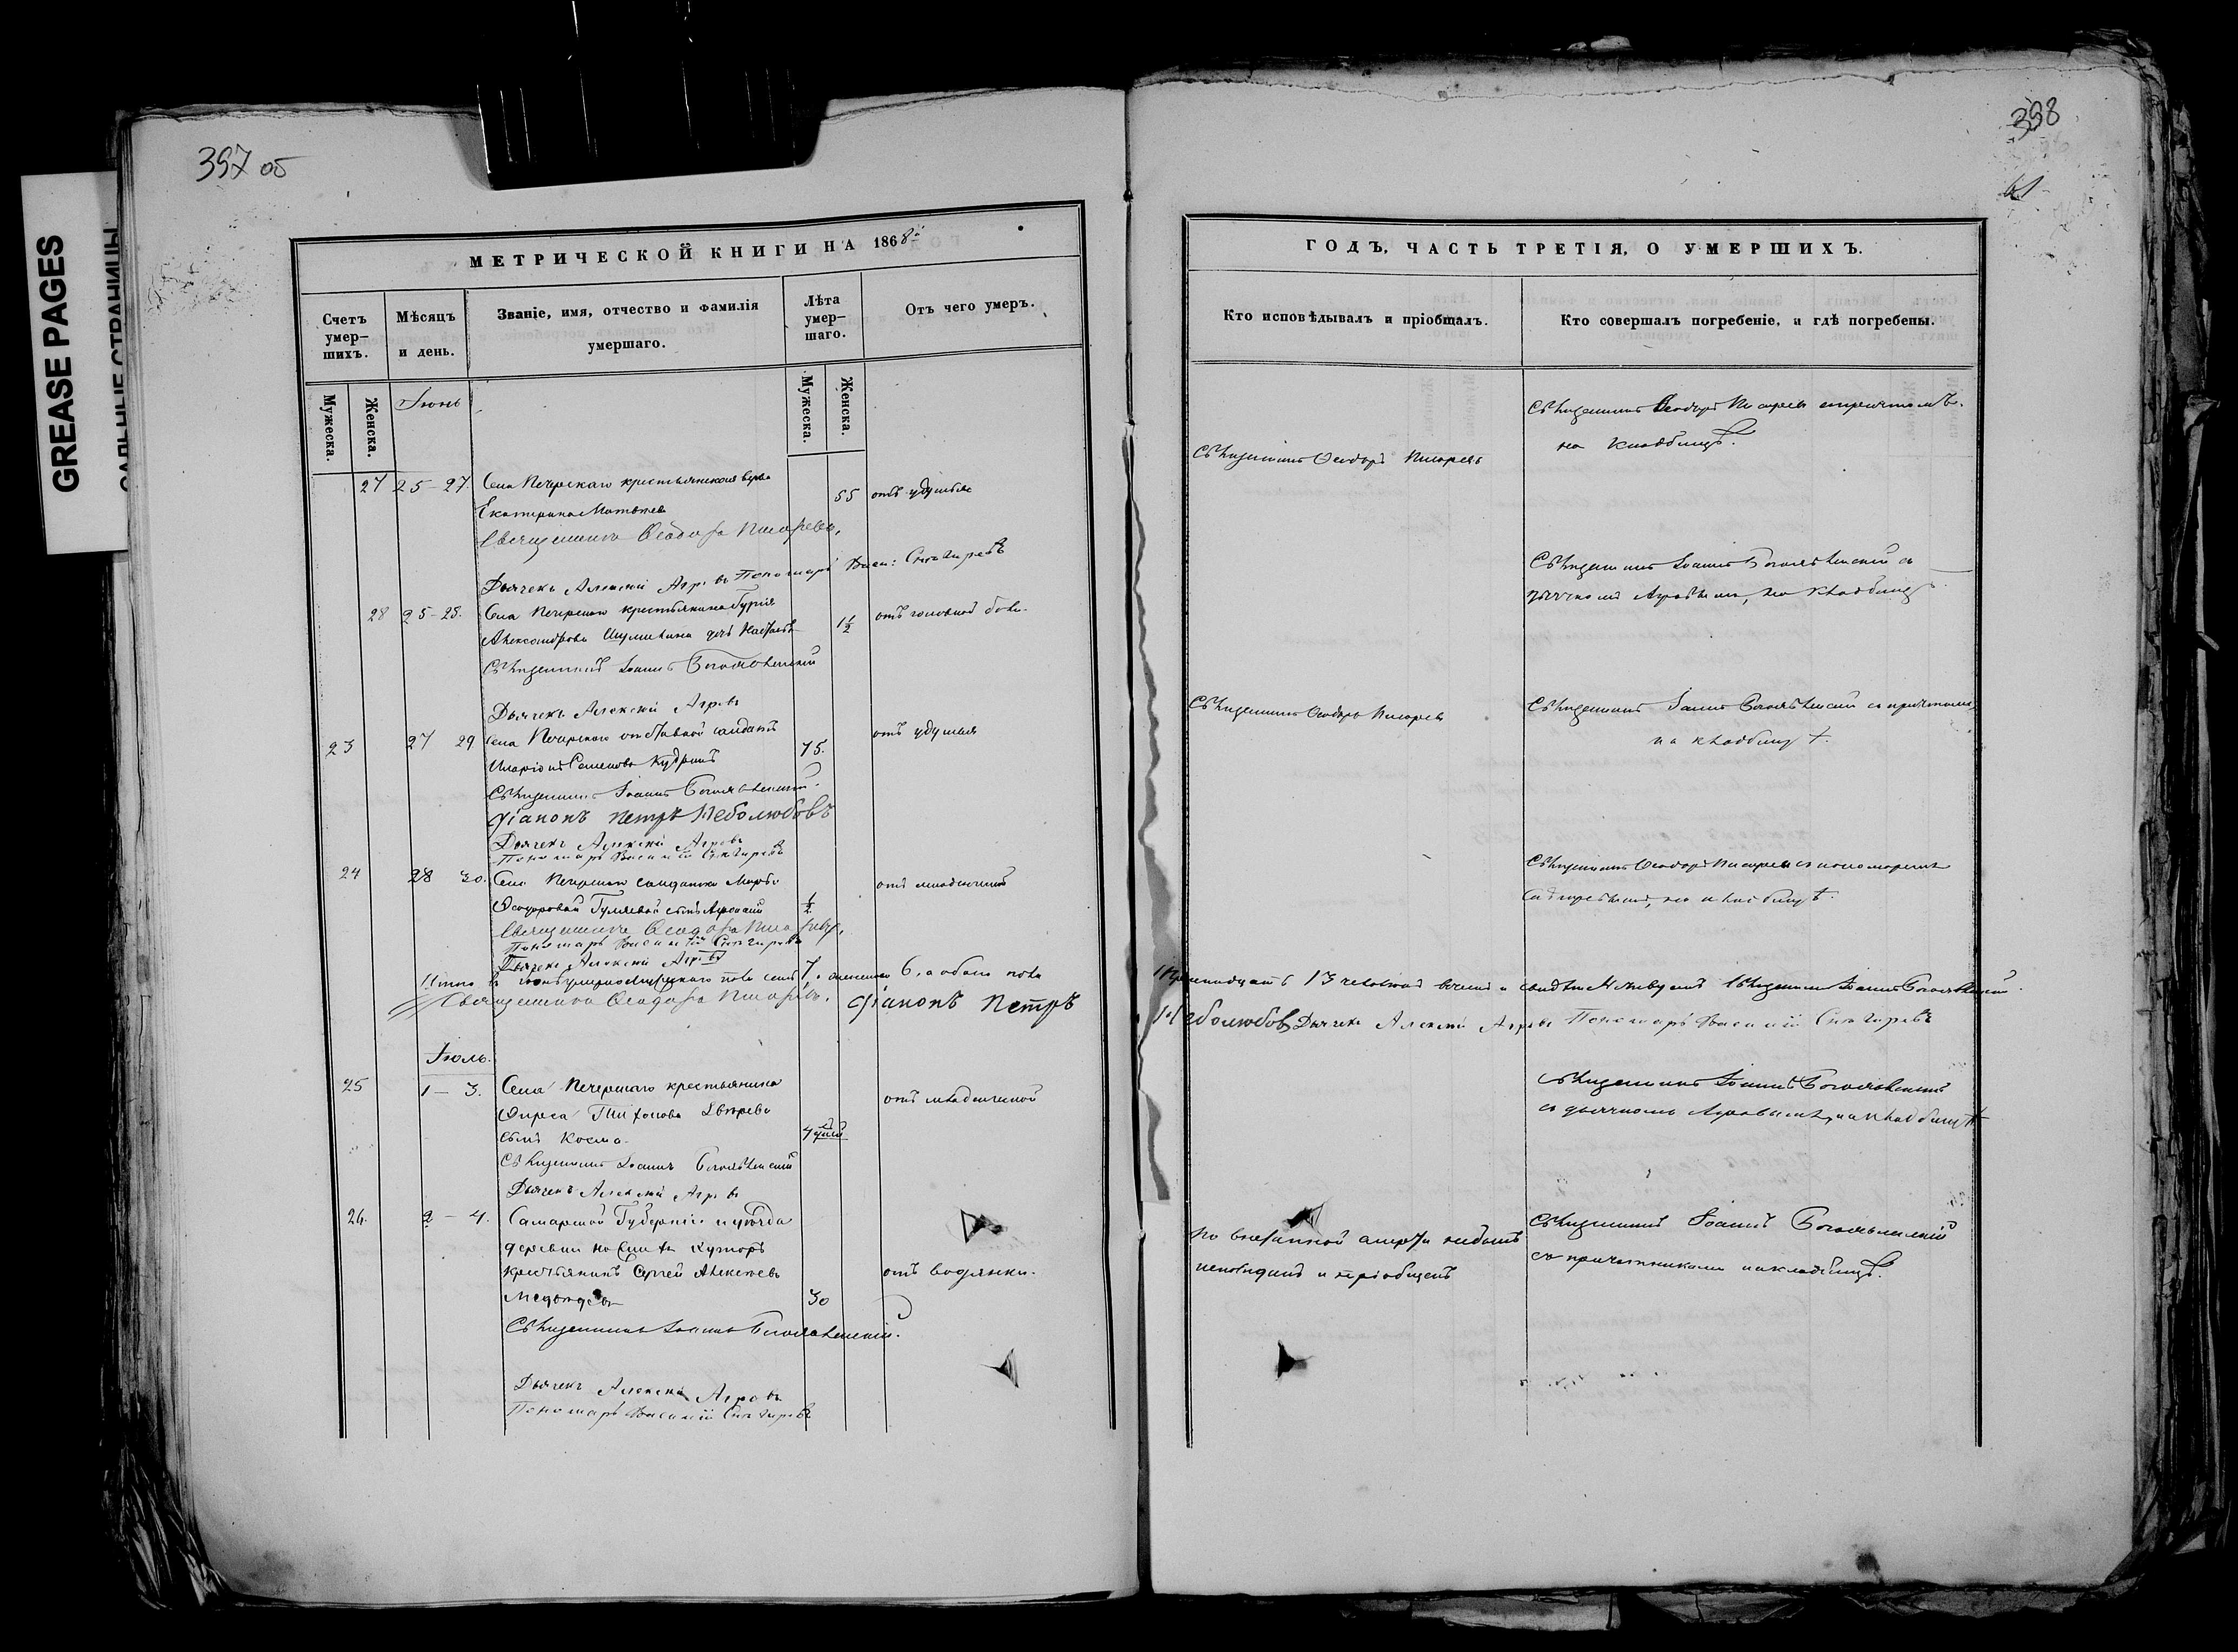 GREASE PAGES
САЛЬНЫЕ СТРАНИЦЫ
397 об
МЕТРИЧЕСКОЙ КНИГИ НА 1868й
Счетъ умер-шихъ.
Мѣсяцъ и день.
Званіе, имя, отчество и фамилія умершаго.
Лѣта умер-шаго.
Отъ чего умеръ.
Мужеска.
Женска.
Мужеска.
Женска.
Іюнь
27 25-27 Села Печерскаго крестьянская
Екатерина Матвѣева 55 отъ удушья
Священникъ Ѳеодоръ Писаревъ.
Дьячекъ Алексѣй Агровъ Пономарь Васи: Снѣгиревъ
28 25-25. Села Печерскаго крестьянина Гурія
Александрова дочь 1½ отъ головной боли
Священникъ Іоаннъ Богоявленскій
Дьячекъ Алексѣй Агровъ
23 27 29 Села Печерскаго отставной солдатъ
Иларіонъ Семеновъ Кудринъ 75. отъ удушья
Священникъ Іоаннъ Богоявленскій.
Діаконъ Петръ Неболюбовъ
Дьячекъ Алексѣй Агровъ
Пономарь Василій Снѣгиревъ
24 28 30. Села Печерскаго солдатки Марѳы
Ѳеодоровой Гуляевой сынъ ½ отъ младенческой
Священникъ Ѳеодоръ Писаревъ,
Пономарь Василій Снѣгиревъ
Дьячекъ Алексѣй Агровъ
Итого въ іюнѣ умерло мужескаго пола семь 7. а женскаго 6, а обоего пола
Священникъ Ѳеодоръ Писаревъ. Діаконъ Петръ
Іюль.
25 1 - 3. Села Печерскаго крестьянина
сынъ Косма. 4 дней отъ младенческой
Священникъ Іоаннъ Богоявленскій
Дьячекъ Алексѣй Агровъ
26. 2 - 4. Самарской Губерніи и уѣзда
деревни хуторъ
крестьянинъ Сергей Алексѣевъ отъ водянки.
Медвѣдевъ 30
Священникъ Іоаннъ Богоявленскій.
Дьячекъ Алексѣй Агровъ
Пономарь Василій Снѣгиревъ
398
ГОДЪ, ЧАСТЬ ТРЕТІЯ, О УМЕРШИХЪ.
Кто исповѣдывалъ и пріобщалъ.
Кто совершалъ погребеніе, и гдѣ погребены.
Священникъ Ѳеодоръ Писаревъ
Священникъ Ѳеодоръ Писаревъ съ причтомъ
на кладбищѣ.
Священникъ Іоаннъ Богоявленскій съ
дьячкомъ Агровымъ, на кладбищѣ
Священникъ Ѳеодоръ Писаревъ
Священникъ Іоаннъ Богоявленскій съ причтомъ
на кладбищѣ.
Священникъ Ѳеодоръ Писаревъ съ пономаремъ
Снѣгиревымъ, на кладбищѣ.
тринадцать 13 человѣкъ Священникъ Іоаннъ Богоявленскій.
Неболюбовъ Дьячекъ Алексѣй Агровъ Пономарь Василій Снѣгиревъ
Священникъ Іоаннъ Богоявленскій
съ дьячкомъ Агровымъ, на кладбищѣ
по внезапной смерти небылъ
исповѣданъ и пріобщенъ
Священникъ Іоаннъ Богоявленскій
съ причетниками на кладбищѣ.